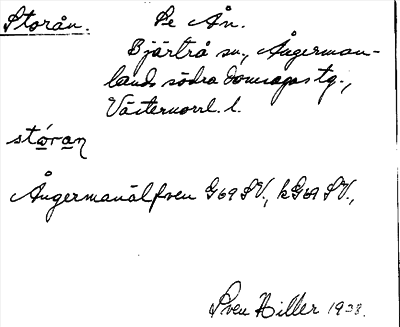 Storån. Se Ån.
Bjärtrå sn., Ångerman-
lands södra domsagas tg.,
Västernorrl. l.
stó̱ra̱n
Ångermanälfven G69SV., kG69 SV.,
Sven Hiller 1938.